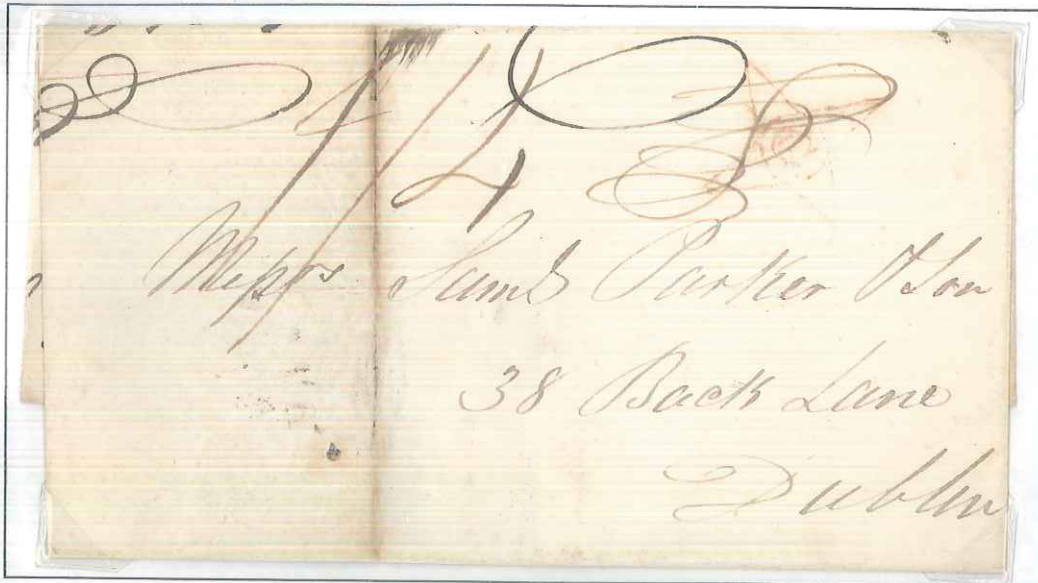 1/4
Messrs Saml Parker & Son
38 Back Lane
Dublin